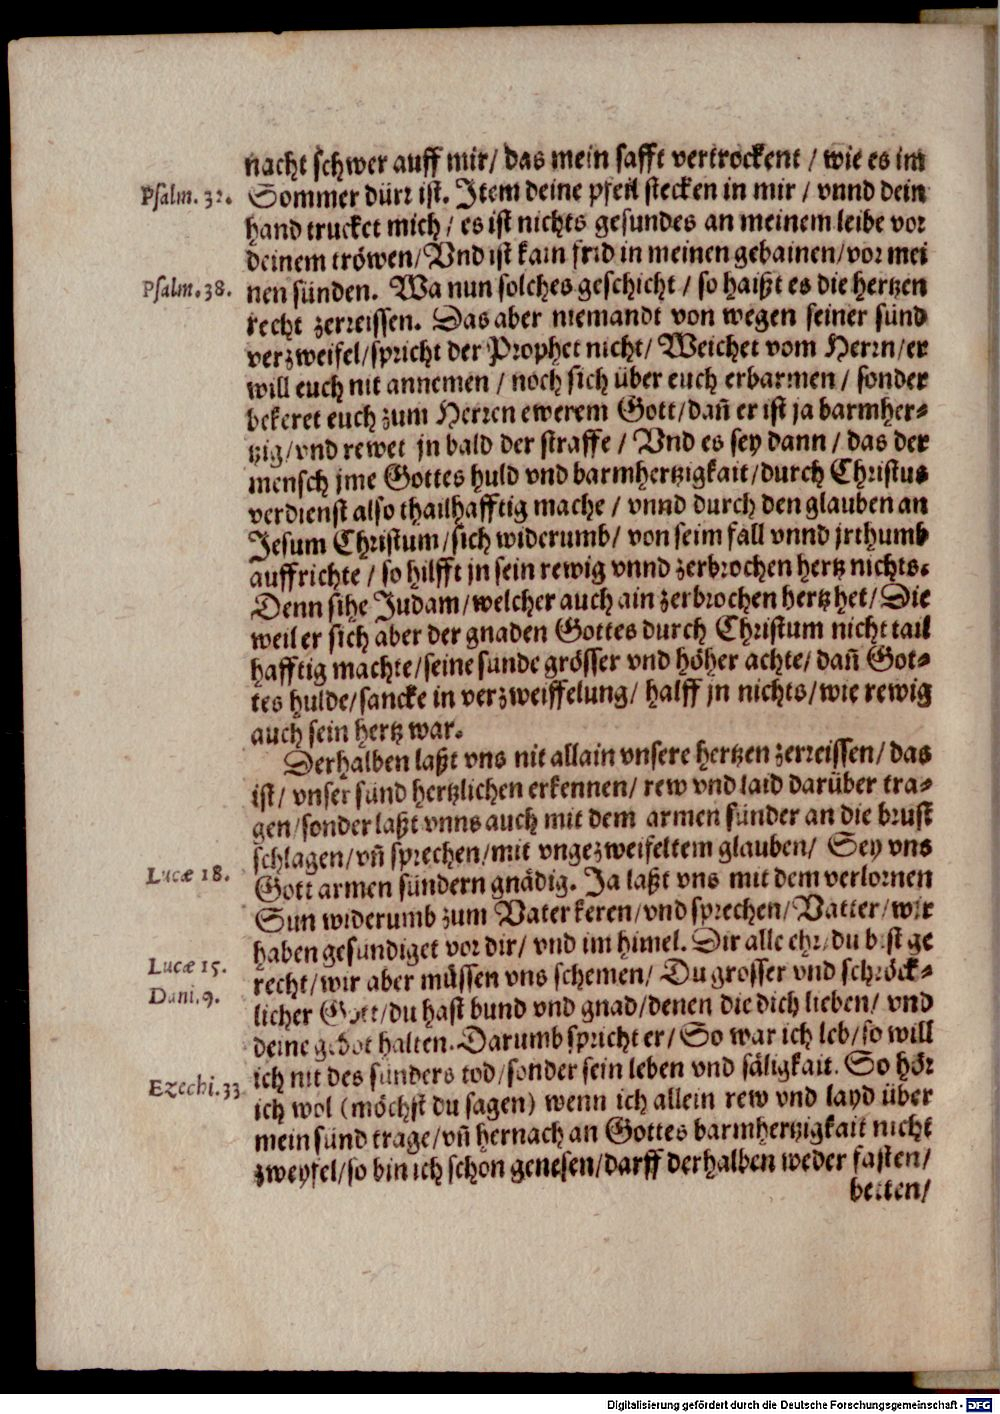 nacht schwer auff mir/ das mein safft vertrockent / wie es im
Psalm. 32. Sommer dürr ist. Item deine pfeil stecken in mir / vnnd dein
hand trucket mich / es ist nichts gesundes an meinem leibe vor
deinem tröwen/ Vnd ist kain frid in meinen gebainen/ vor mei
Psalm. 38. nen sünden. Wa nun solches geschicht / so haißt es die hertzen
recht zerreissen. Das aber niemandt von wegen seiner sünd
verzweifel/ spricht der Prophet nicht/ Weichet vom Herrn/ er
will euch nit annemen / noch sich über euch erbarmen / sonder
bekeret euch zum Herren ewerem Gott/ dañ er ist ja barmher-
tzig/ vnd rewet jn bald der straffe / Vnd es sey dann / das der
mensch jme Gottes huld vnd barmhertzigkait/ durch Christus
verdienst also thailhafftig mache / vnnd durch den glauben an
Jesum Christum/ sich widerumb/ von seim fall vnnd jrthumb
auffrichte / so hilfft jn sein rewig vnnd zerbrochen hertz nichts.
Denn sihe Judam/ welcher auch ain zerbrochen hertz het/ Die
weil er sich aber der gnaden Gottes durch Christum nicht tail
hafftig machte/ seine sunde grösser vnd höher achte/ dañ Got-
tes hulde/ sancke in verzweiffelung/ halff jn nichts/ wie rewig
auch sein hertz war.
Derhalben laßt vns nit allain vnsere hertzen zerreissen/ das
ist/ vnser sünd hertzlichen erkennen/ rew vnd laid darüber tra-
gen/ sonder laßt vnns auch mit dem armen sünder an die brust
schlagen/ vñ sprechen/ mit vngezweifeltem glauben/ Sey vns
Lucæ 18. Gott armen sündern gnädig. Ja laßt vns mit dem verlornen
Sun widerumb zum Vater keren/ vnd sprechen/ Vatter/ wir
haben gesündiget vor dir/ vnd im himel. Dir alle ehr/ du bist ge
Lucæ 15. recht/ wir aber müssen vns schemen/ Du grosser vnd schröck-
Dani. 9. licher Gott/ du hast bund vnd gnad/ denen die dich lieben/ vnd
deine gebot halten. Darumb spricht er/ So war ich leb/ so will
Ezechi. 33 ich nit des sünders tod/ sonder sein leben vnd säligkait. So hör
ich wol (möchst du sagen) wenn ich allein rew vnd layd über
mein sünd trage/ vñ hernach an Gottes barmhertzigkait nicht
zweyfel/ so bin ich schon genesen/ darff derhalben weder fasten/
betten/
Digitalisierung gefördert durch die Deutsche Forschungsgemeinschaft - DFG